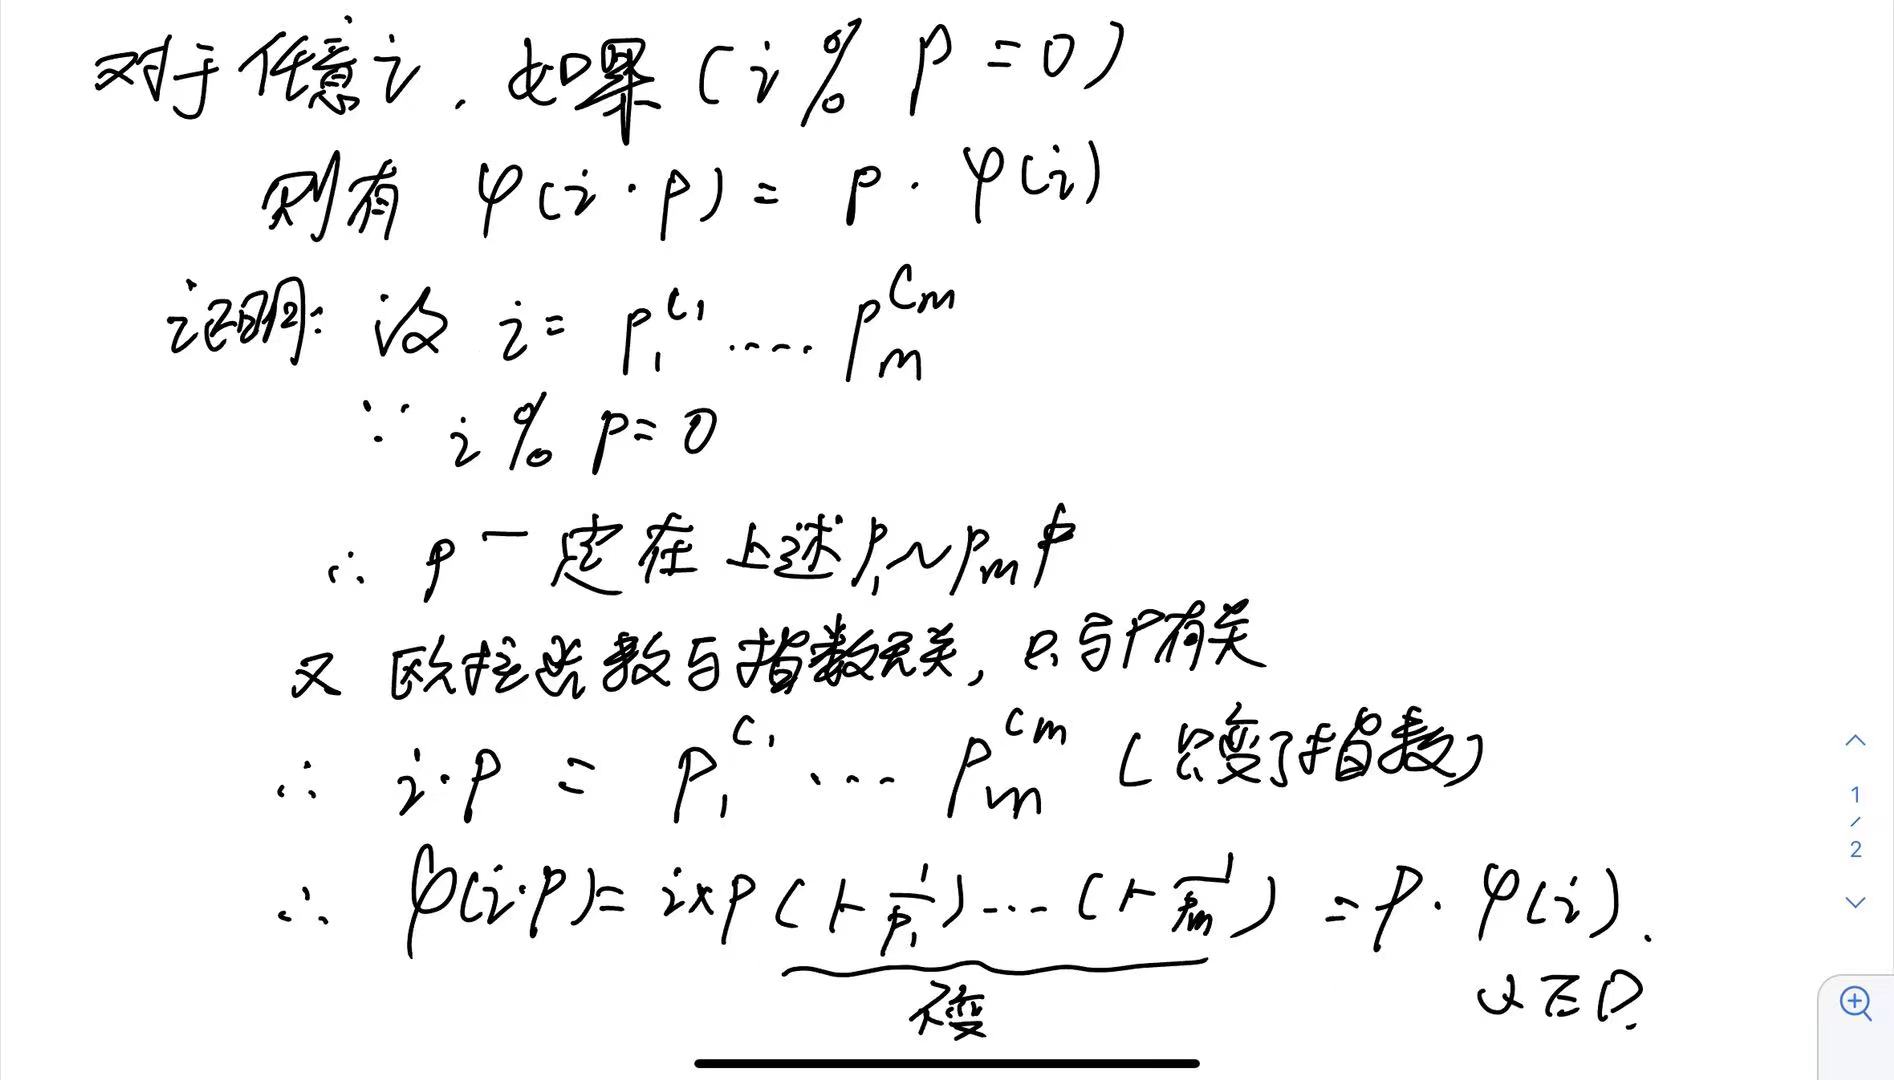 对于任意i，如果(i % p = 0)
则有 φ(i·p) = p·φ(i)
证明: 设 i = p₁^c₁ ····· pₘ^Cm
∵ i % p = 0
∴ p一定在上述p₁~pₘ中
又 欧拉函数与指数无关, 只与P有关
∴ i·p = p₁^c₁ ···· pₘ^cm (只变了指数)
∴ φ(i·p) = i×p(1-1/p₁)···(1-1/pm) = p·φ(i).
不变
QED.
1
/
2